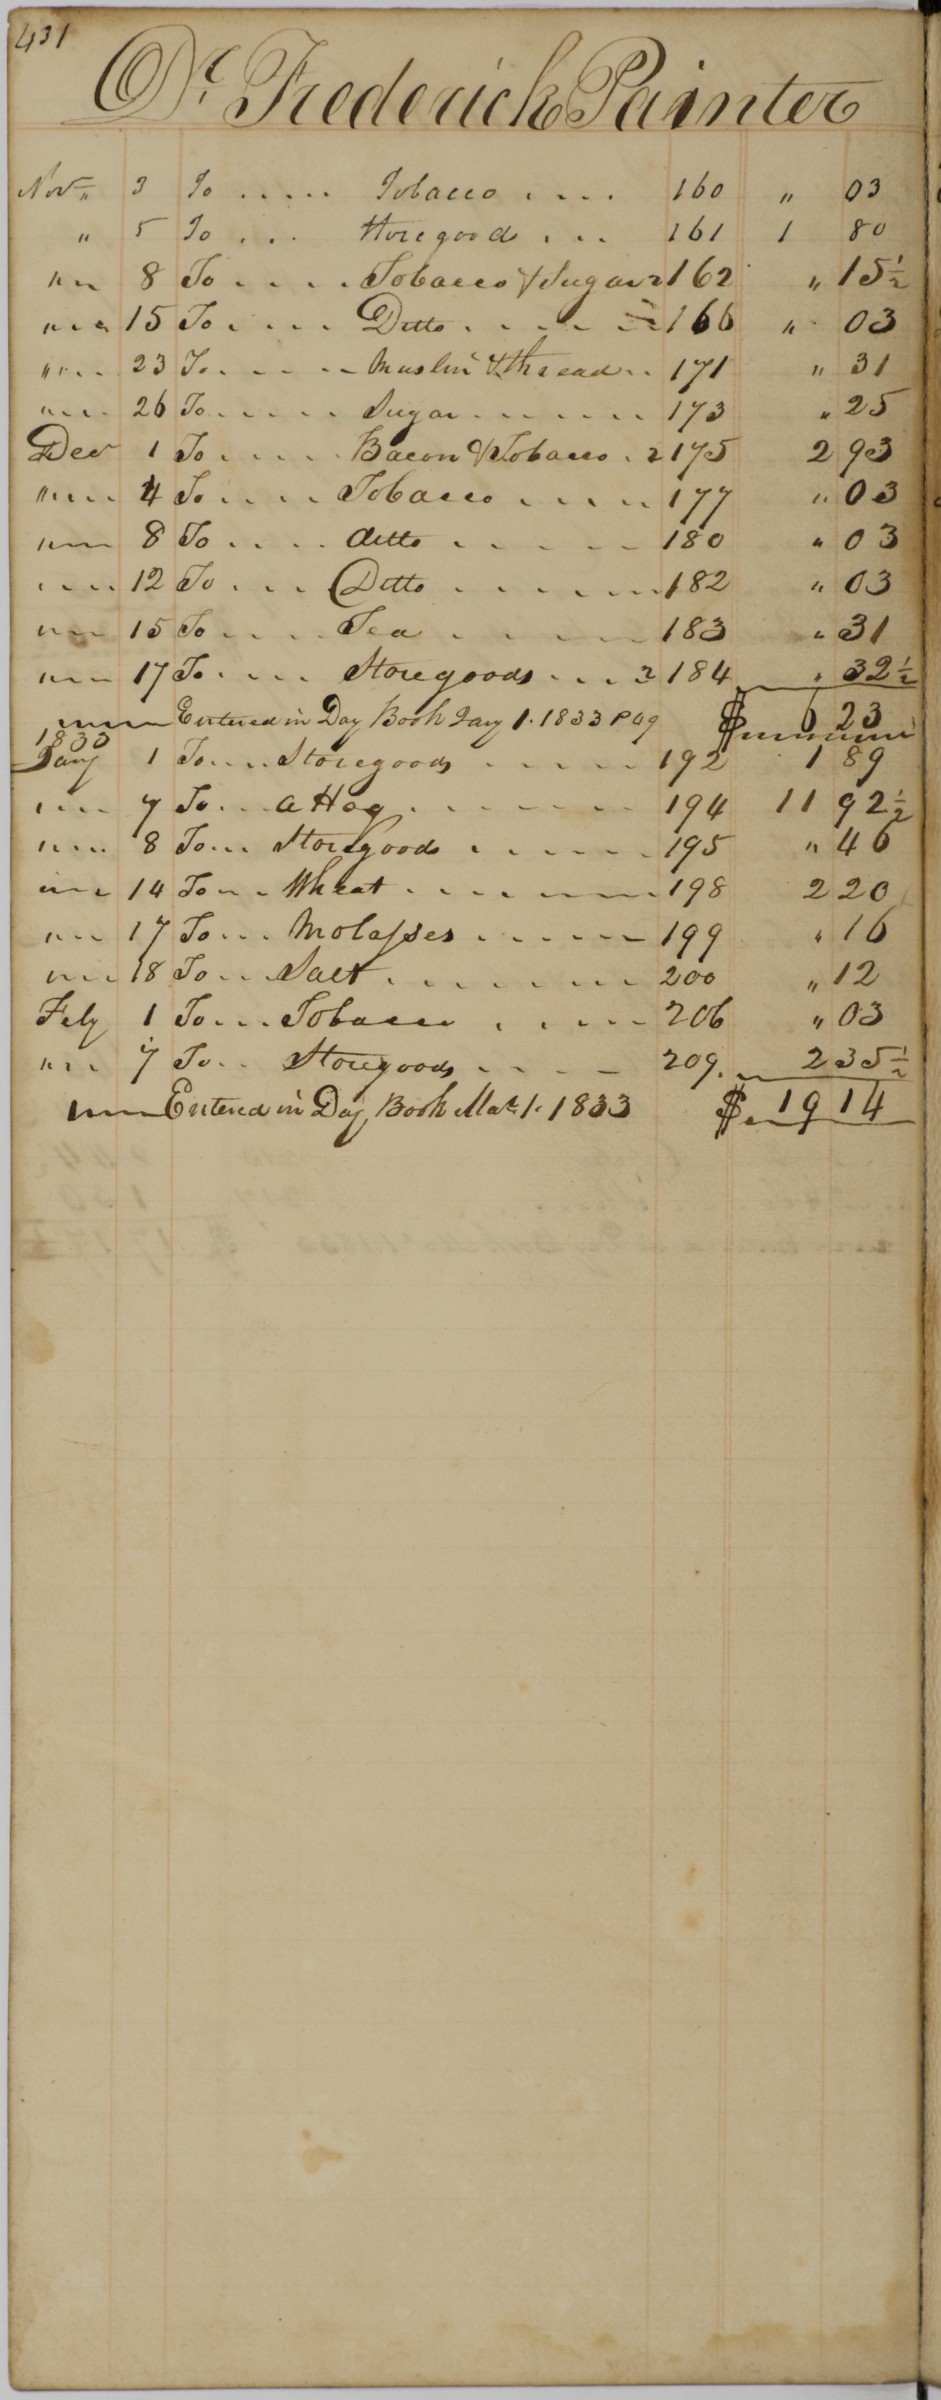 431
Dr. Frederick Painter
Nov " 3 To .... Tobacco .... 160 " 03
" 5 To ... Storegoods ... 161 1 80
" " 8 To .... Tobacco & Sugar 2 162 " 15½
" " 15 To .... Ditto .... 2 166 " 03
" " 23 To .... Muslin & thread .. 171 " 31
" " 26 To .... Sugar .... 173 " 25
Dec 1 To .... Bacon & Tobacco . 2 175 2 93
" " 4 To .... Tobacco .... 177 " 03
" " 8 To .... ditto .... 180 " 03
" " 12 To ... Ditto .... 182 " 03
" " 15 To .... Tea .... 183 " 31
" " 17 To .... Storegoods ... 2 184 " 32½
" " Entered in Day Book Jany 1. 1833 P 09 $ 6 23
1833
Jany 1 To ... Storegoods .... 192 1 89
" " 7 To ... a Hog .... 194 11 92½
" " 8 To ... Storegoods .... 195 " 46
" " 14 To ... Wheat .... 198 2 20
" " 17 To ... Molasses .... 199 " 16
" " 18 To ... Salt .... 200 " 12
Feby 1 To ... Tobacco .... 206 " 03
" " 7 To .. Storegoods .... 209. 2 35½
" " Entered in Day Book Mar 1. 1833 $. 19 14